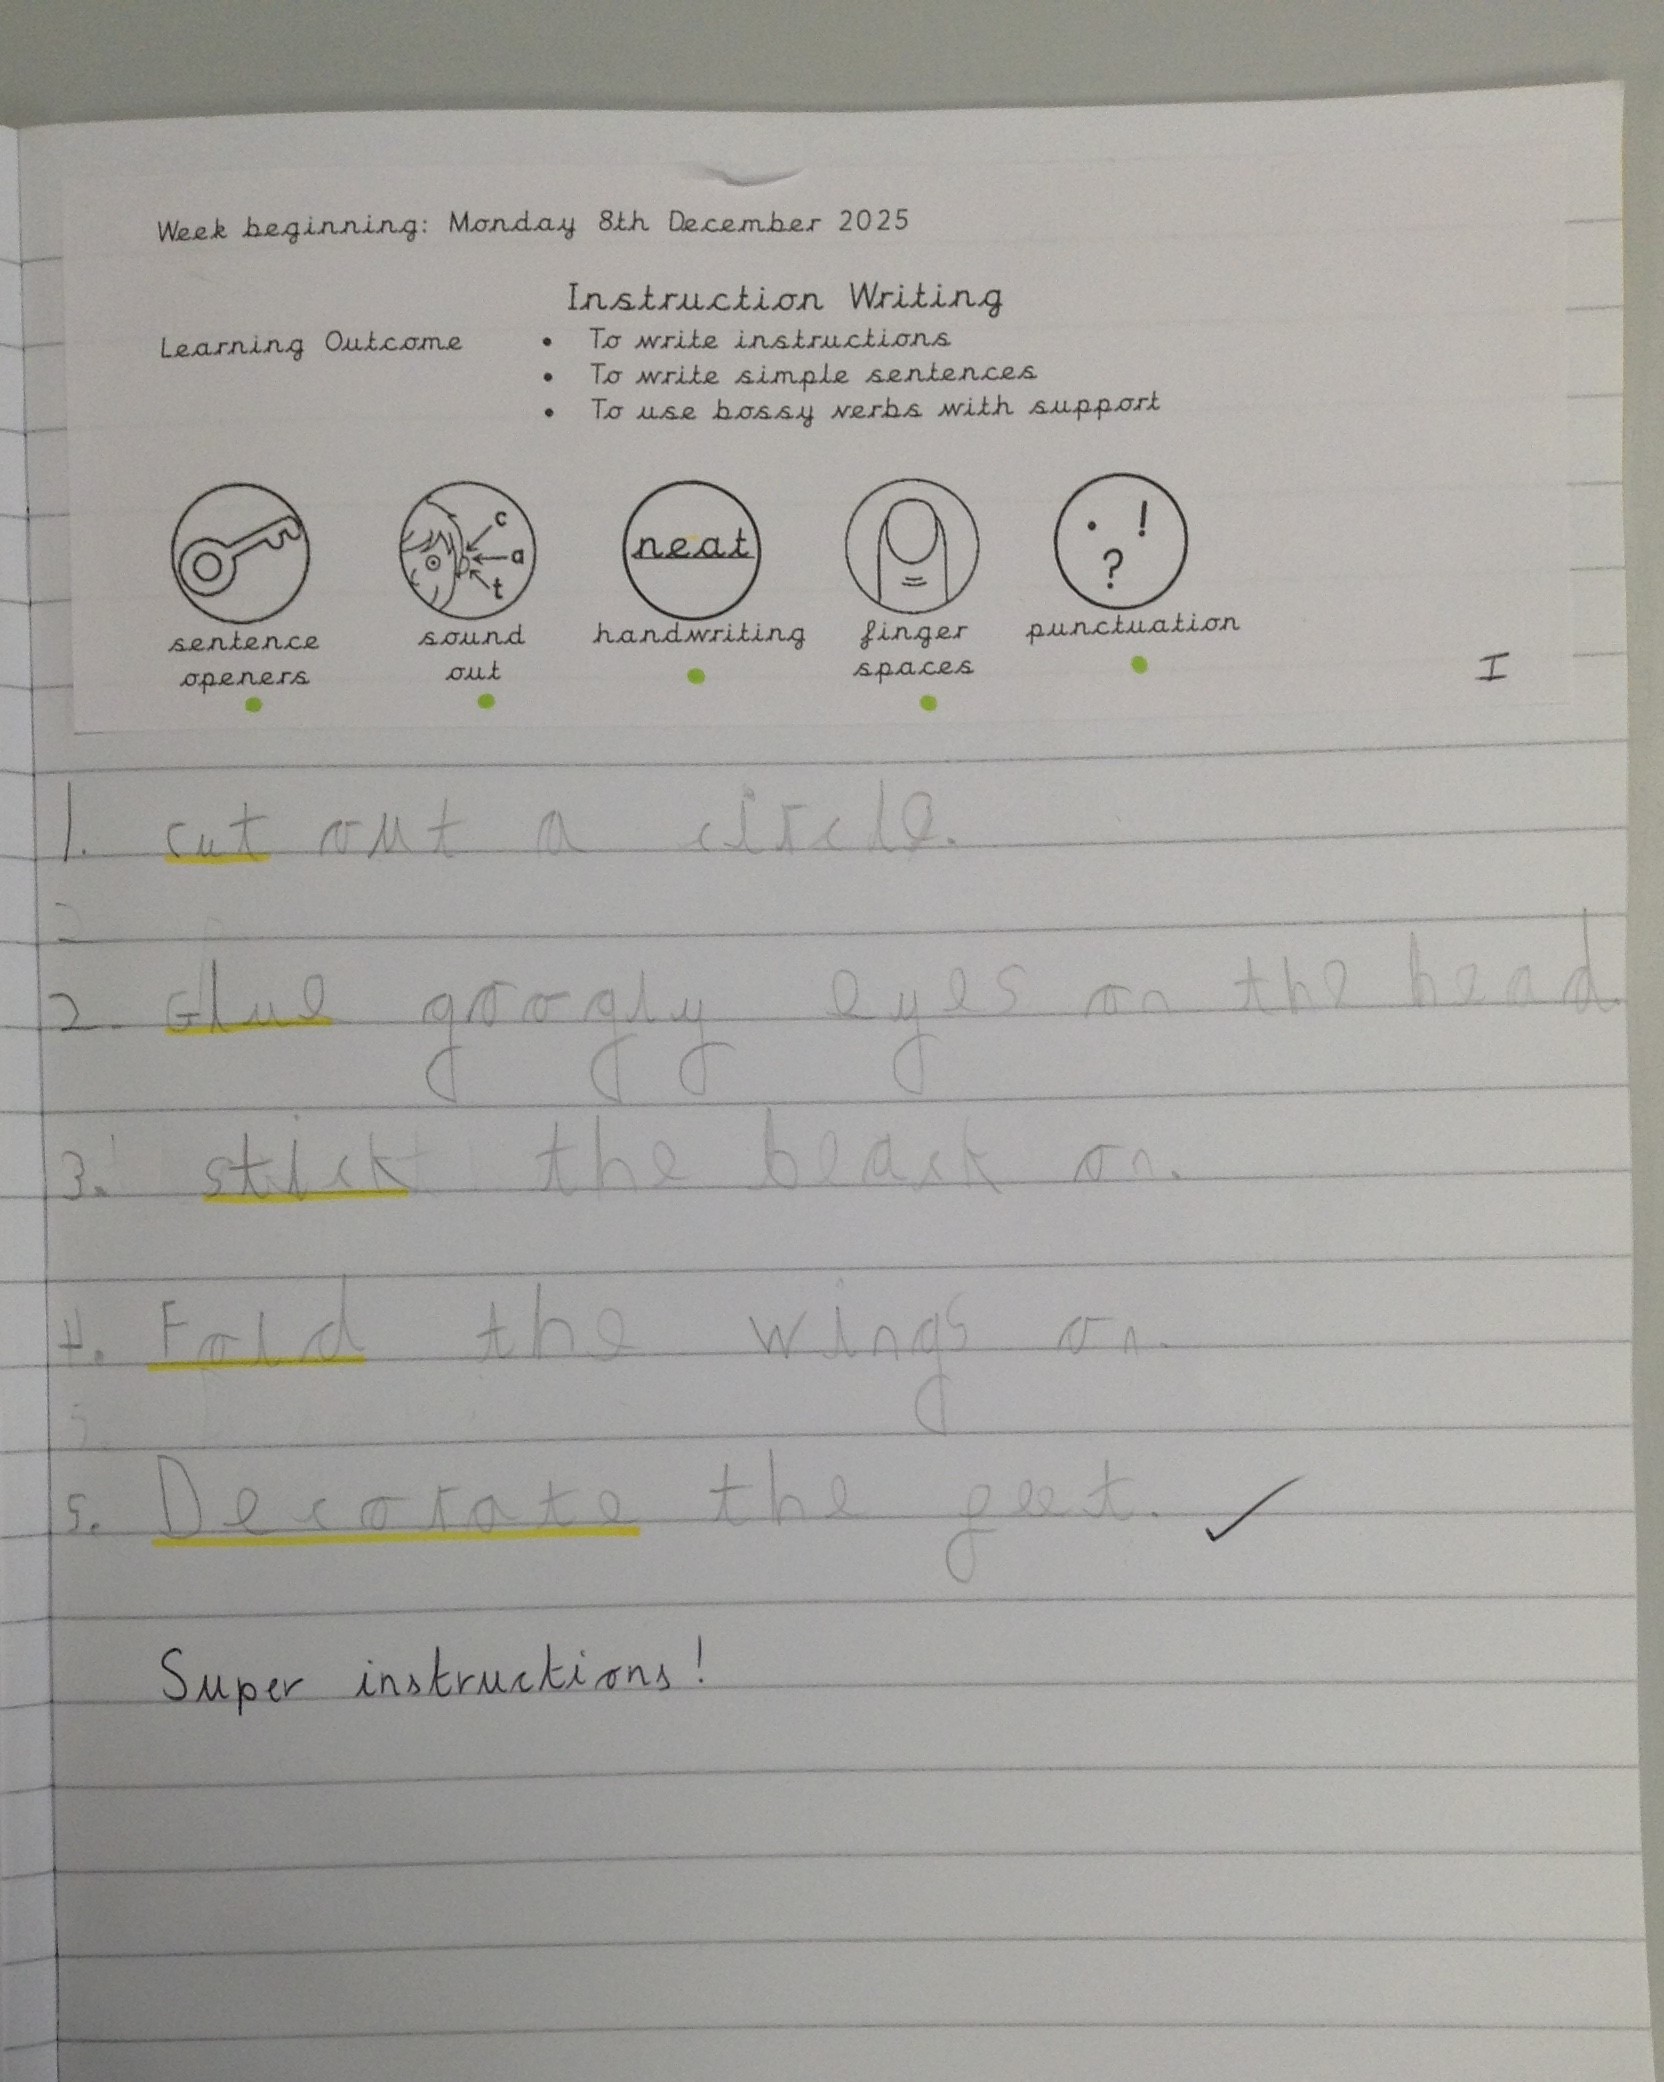 Week beginning: Monday 8th December 2025
Instruction Writing
Learning Outcome
• To write instructions
• To write simple sentences
• To use bossy verbs with support
c
a
t
neat
. ! ?
sentence openers
sound out
handwriting
finger spaces
punctuation
I
1. cut out a circle.
2
2. Glue googly eyes on the head.
3. stick the beack on.
4. Fold the wings on.
5.
5. Decorate the feet. ✓
Super instructions!